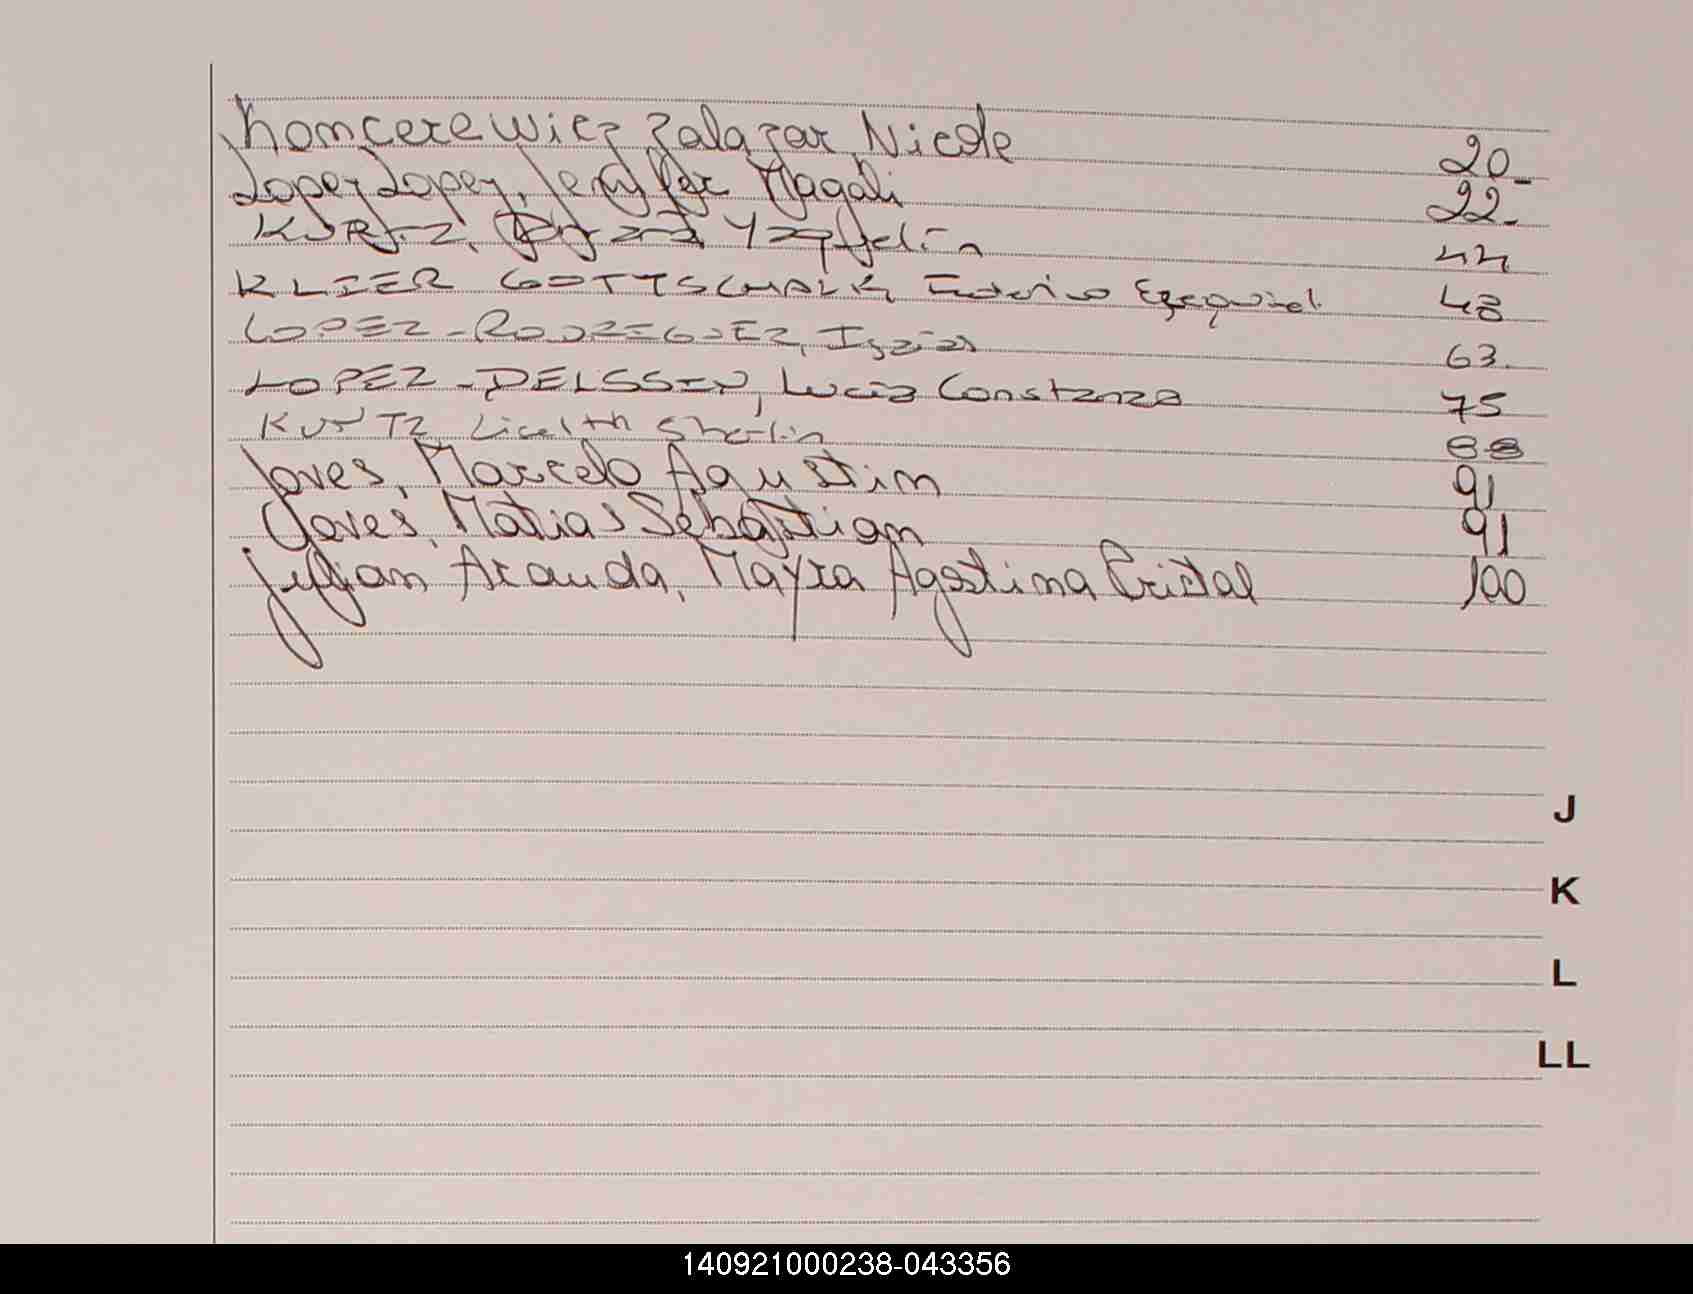 Koncerewicz Zalazar, Nicole 20-
Lopez Lopez, Jennifer Magali 22-
KURTZ, Yaquelin 44
KLIER GOTTSCHALK, Federico Ezequiel 48
LOPEZ - RODRIGUEZ, Isaias 63.
LOPEZ - DELSSIN, Lucia Constanza 75
KURTZ 88
Joves, Marcelo Agustin 91
Joves, Matias Sebastian 91
Julian Aranda, Mayra Agostina Cristal 100
J
K
L
LL
140921000238-043356